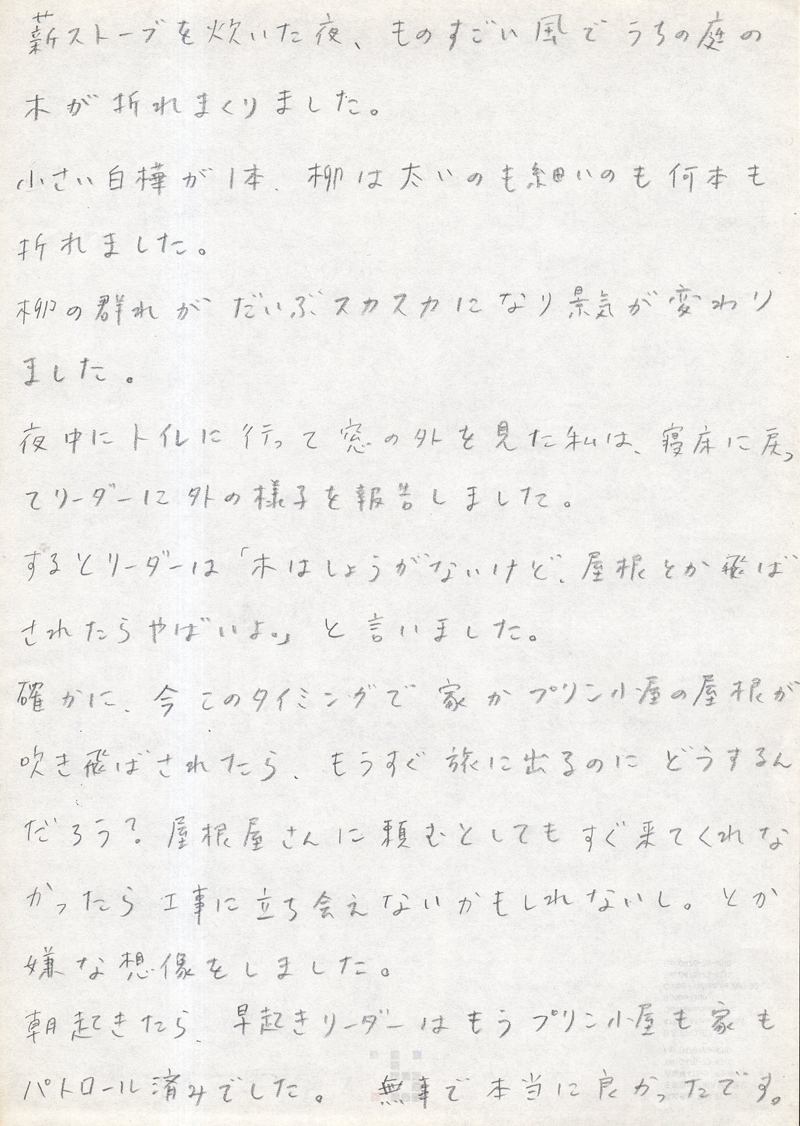 薪ストーブを炊いた夜、ものすごい風でうちの庭の
木が折れまくりました。
小さい白樺が1本、柳は太いのも細いのも何本も
折れました。
柳の群れがだいぶスカスカになり景気が変わり
ました。
夜中にトイレに行って窓の外を見た私は、寝床に戻っ
てリーダーに外の様子を報告しました。
するとリーダーは「木はしょうがないけど、屋根とか飛ば
されたらやばいよ。」と言いました。
確かに、今このタイミングで家かプリン小屋の屋根が
吹き飛ばされたら、もうすぐ旅に出るのにどうするん
だろう?屋根屋さんに頼むとしてもすぐ来てくれな
かったら工事に立ち会えないかもしれないし。とか
嫌な想像をしました。
朝起きたら、早起きリーダーはもうプリン小屋も家も
パトロール済みでした。 無事で本当に良かったです。